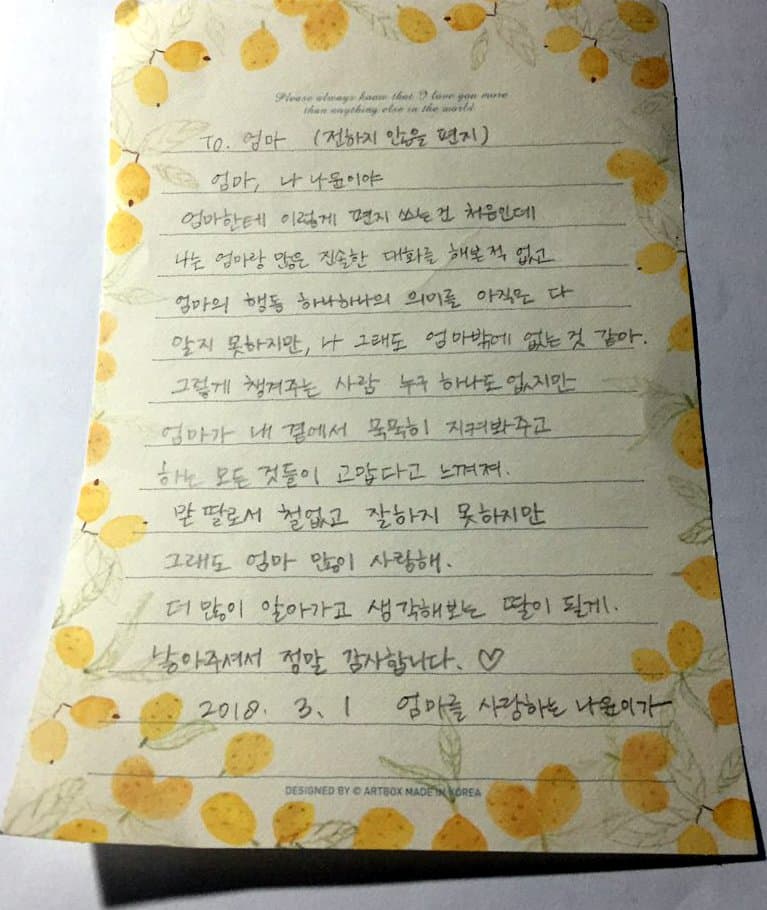 Please always know that I love you more
than anything else in the world
To. 엄마 (전하지 않을 편지)
엄마, 나 나윤이야
엄마한테 이렇게 편지 쓰는건 처음인데
나는 엄마랑 많은 진솔한 대화를 해본적 없고
엄마의 행동 하나하나의 의미를 아직은 다
알지 못하지만, 나 그래도 엄마밖에 없는 것 같아.
그렇게 챙겨주는 사람 누구 하나도 없지만
엄마가 내 곁에서 묵묵히 지켜봐주고
하는 모든 것들이 고맙다고 느껴져.
맏딸로서 철없고 잘하지 못하지만
그래도 엄마 많이 사랑해.
더 많이 알아가고 생각해보는 딸이 될게.
낳아주셔서 정말 감사합니다. ♡
2018. 3. 1 엄마를 사랑하는 나윤이가
DESIGNED BY © ARTBOX MADE IN KOREA